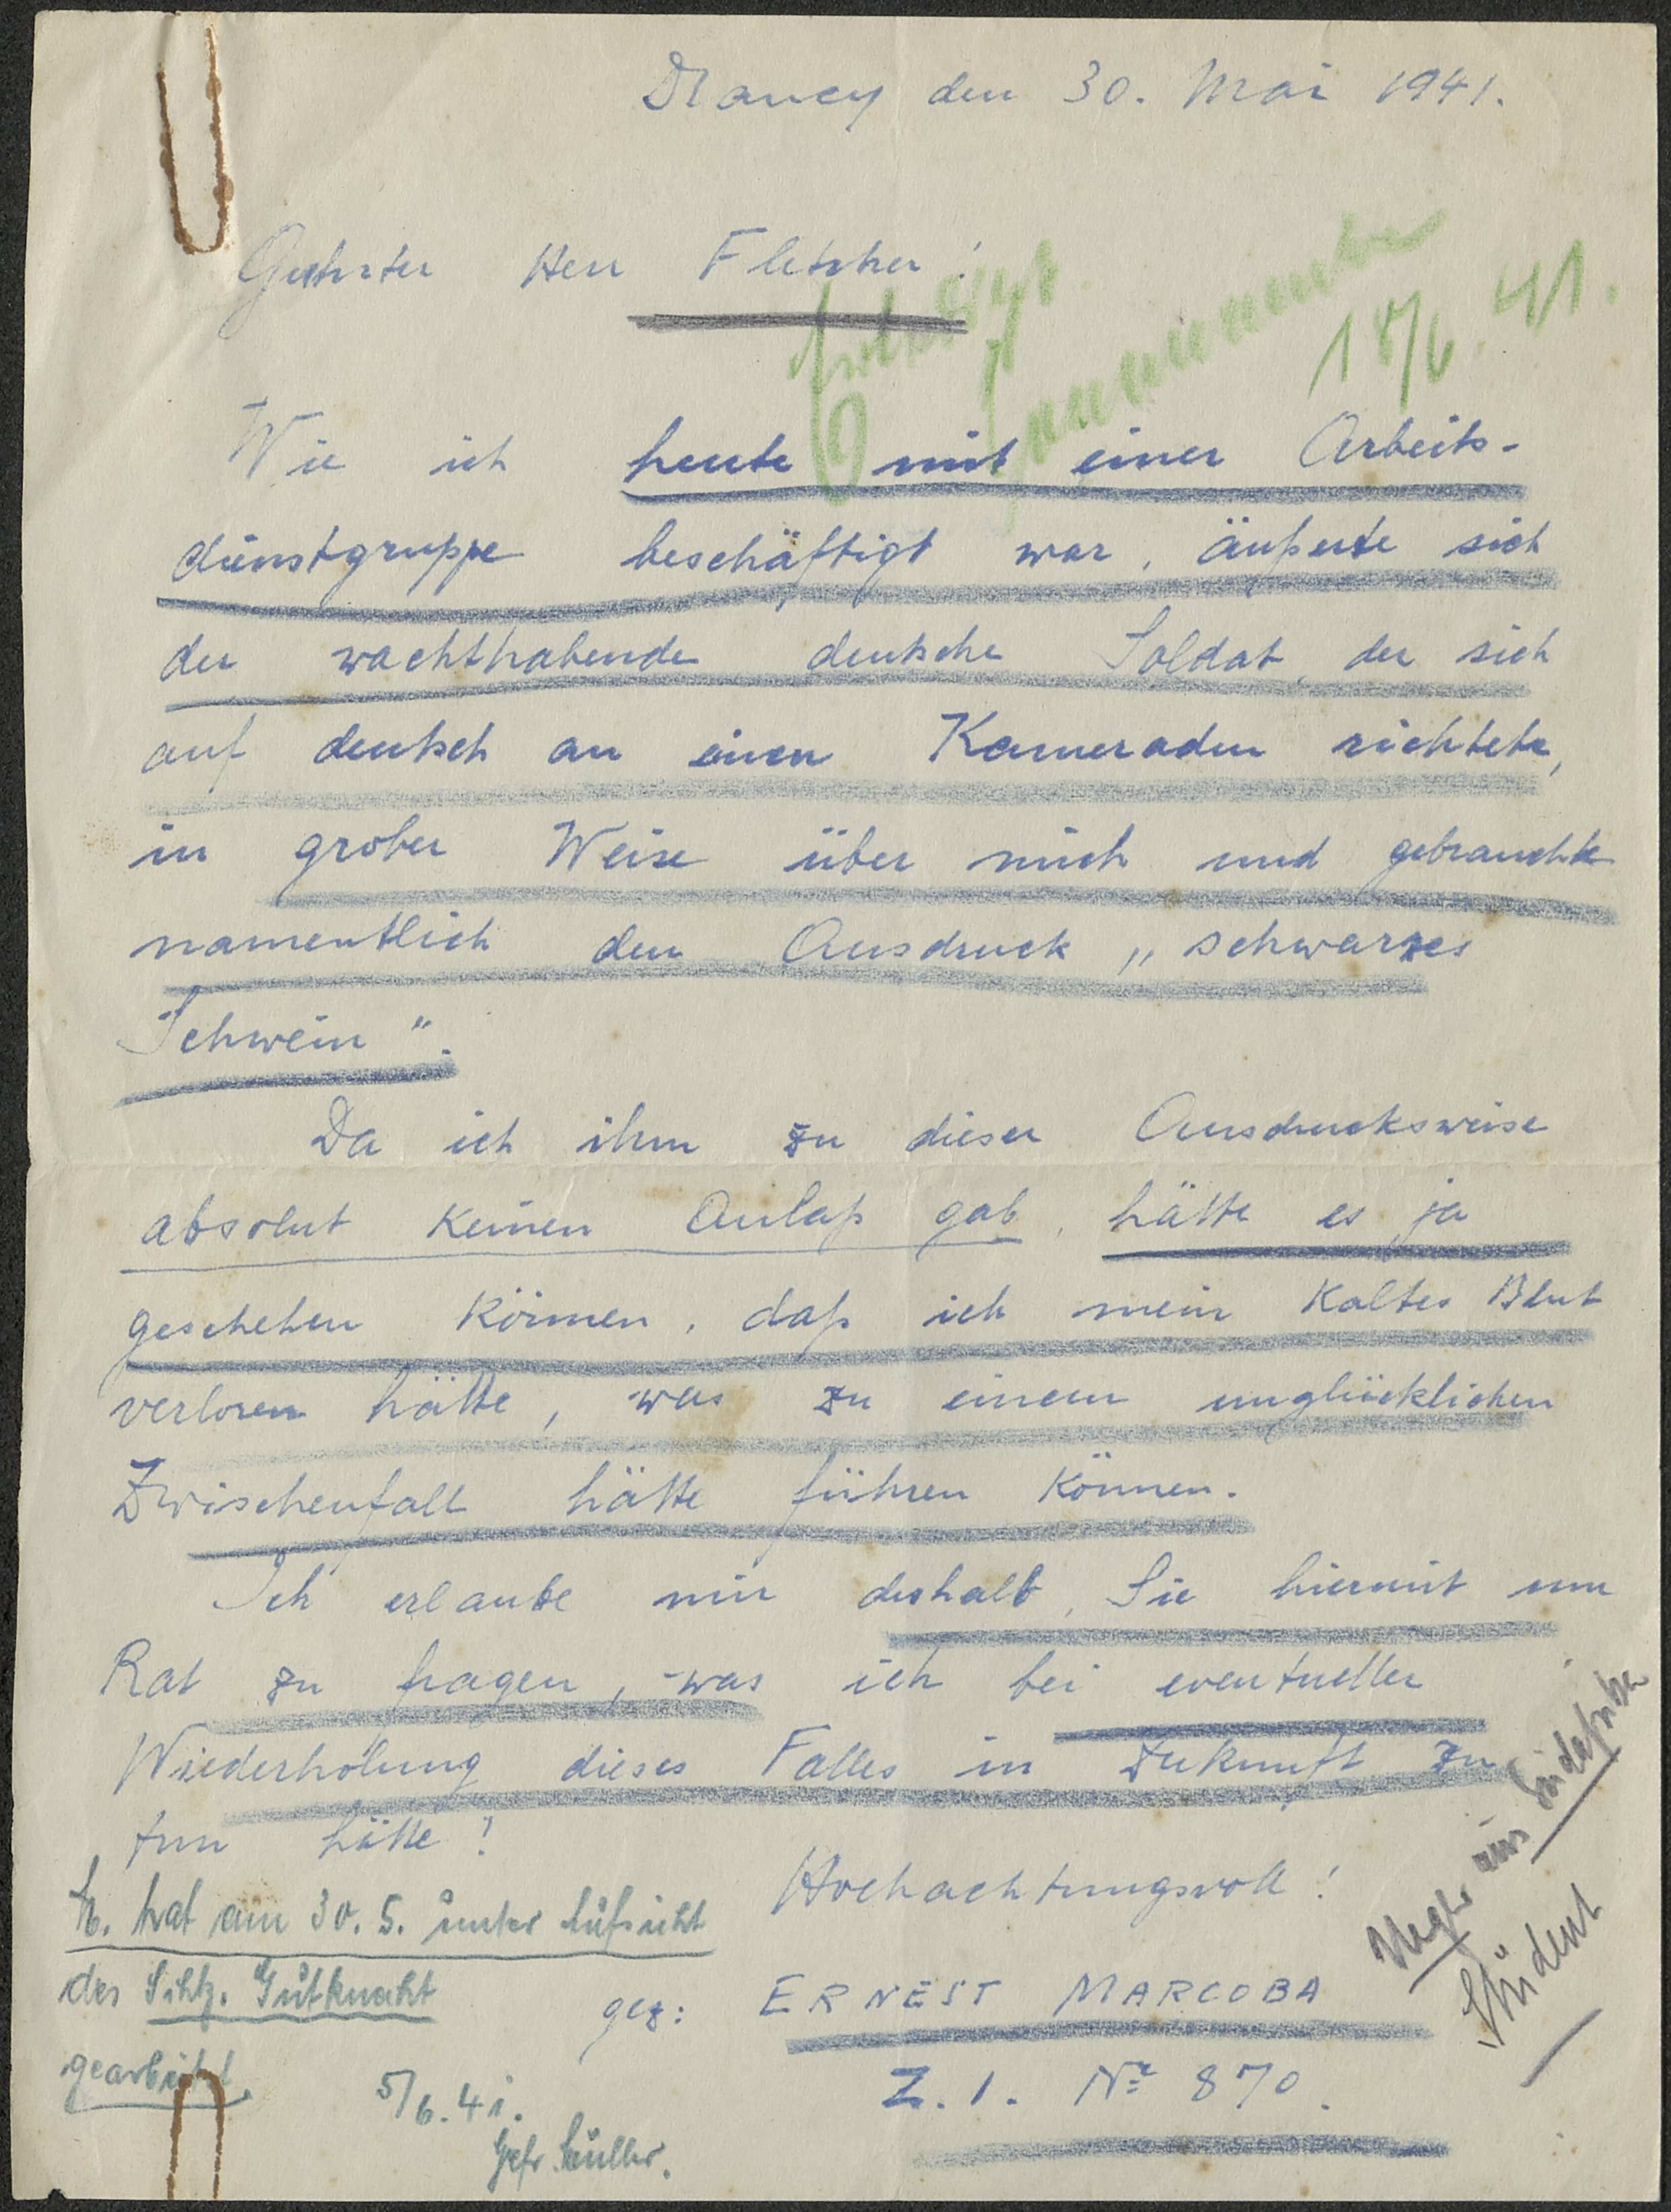 Drancy den 30. Mai 1941.
Geehrter Herr Fletcher!
Erledigt
18/6. 41.
Wie ich heute mit einer Arbeits-
dienstgruppe beschäftigt war, äußerte sich
der wachthabende deutsche Soldat, der sich
auf deutsch an einen Kameraden richtete,
in grober Weise über mich und gebrauchte
namentlich den Ausdruck „schwarzes
Schwein".
Da ich ihm zu dieser Ausdrucksweise
absolut keinen Anlaß gab, hätte es ja
geschehen können, daß ich mein kaltes Blut
verloren hätte, was zu einem unglücklichen
Zwischenfall hätte führen können.
Ich erlaube mir deshalb, Sie hiermit um
Rat zu fragen, was ich bei eventueller
Wiederholung dieses Falles in Zukunft zu
tun hätte!
Hochachtungsvoll!
gez: ERNEST MARCOBA
Z.1. Nr 870.
M. hat am 30.5. unter Aufsicht
des Schtz. Gutknecht
gearbeitet.
5/6.41.
Gefr. Müller.
Neger aus Südafrika
Student